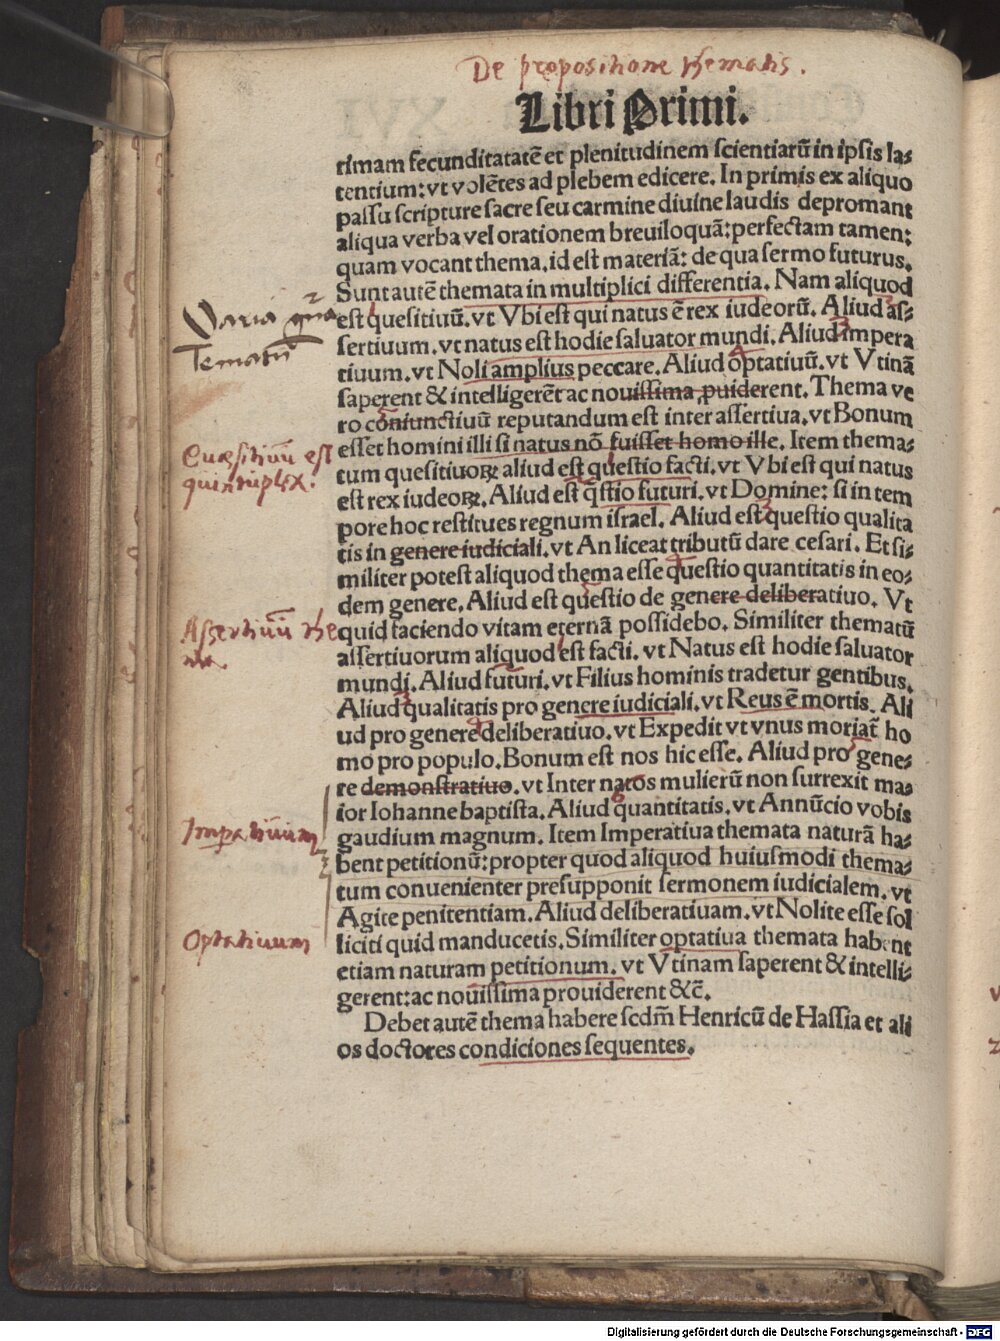 De propositione thematis.
Libri Primi.
timam fecunditatatē et plenitudinem scientiarū in ipsis la⸗
tentium: vt volētes ad plebem edicere. In primis ex aliquo
passu scripture sacre seu carmine diuine laudis depromant
aliqua verba vel orationem breuiloquā: perfectam tamen:
quam vocant thema. id est materiā: de qua sermo futurus.
Sunt autē themata in multiplici differentia. Nam aliquod
est quesitiuū. vt Vbi est qui natus ē rex iudeorū. Aliud as⸗
sertiuum. vt natus est hodie saluator mundi. Aliud impera
tiuum. vt Noli amplius peccare. Aliud optatiuū. vt Vtinā
saperent & intelligerēt ac nouissima puiderent. Thema ve
ro coniunctiuū reputandum est inter assertiua. vt Bonum
esset homini illi si natus nō fuisset homo ille. Item thema⸗
tum quesitiuoꝝ aliud est questio facti. vt Vbi est qui natus
est rex iudeoꝝ. Aliud est q̄stio futuri. vt Domine: si in tem
pore hoc restitues regnum israel. Aliud est questio qualita
tis in genere iudiciali. vt An liceat tributū dare cesari. Et si⸗
militer potest aliquod thema esse questio quantitatis in eo⸗
dem genere, Aliud est questio de genere deliberatiuo. Vt
quid faciendo vitam eternā possidebo. Similiter thematū
assertiuorum aliquod est facti. vt Natus est hodie saluator
mundi. Aliud futuri. vt Filius hominis tradetur gentibus.
Aliud qualitatis pro genere iudiciali. vt Reus ē mortis. Ali
ud pro genere deliberatiuo. vt Expedit vt vnus moriat̄ ho
mo pro populo. Bonum est nos hic esse. Aliud pro gene⸗
re demonstratiuo. vt Inter natos mulierū non surrexit ma⸗
ior Iohanne baptista. Aliud quantitatis. vt Annūcio vobis
gaudium magnum. Item Imperatiua themata naturā ha⸗
bent petitionū: propter quod aliquod huiusmodi thema⸗
tum conuenienter presupponit sermonem iudicialem. vt
Agite penitentiam. Aliud deliberatiuam. vt Nolite esse sol
liciti quid manducetis. Similiter optatiua themata habent
etiam naturam petitionum. vt Vtinam saperent & intelli⸗
gerent: ac nouissima prouiderent &c̄.
Debet autē thema habere scdm̄ Henricū de Hassia et ali
os doctores condiciones sequentes.
Varia
Tematū
Quæsitiuū est
quintuplex.
Assertiuū the
ma
Imperatiuum
Optatiuum
Digitalisierung gefördert durch die Deutsche Forschungsgemeinschaft - DFG